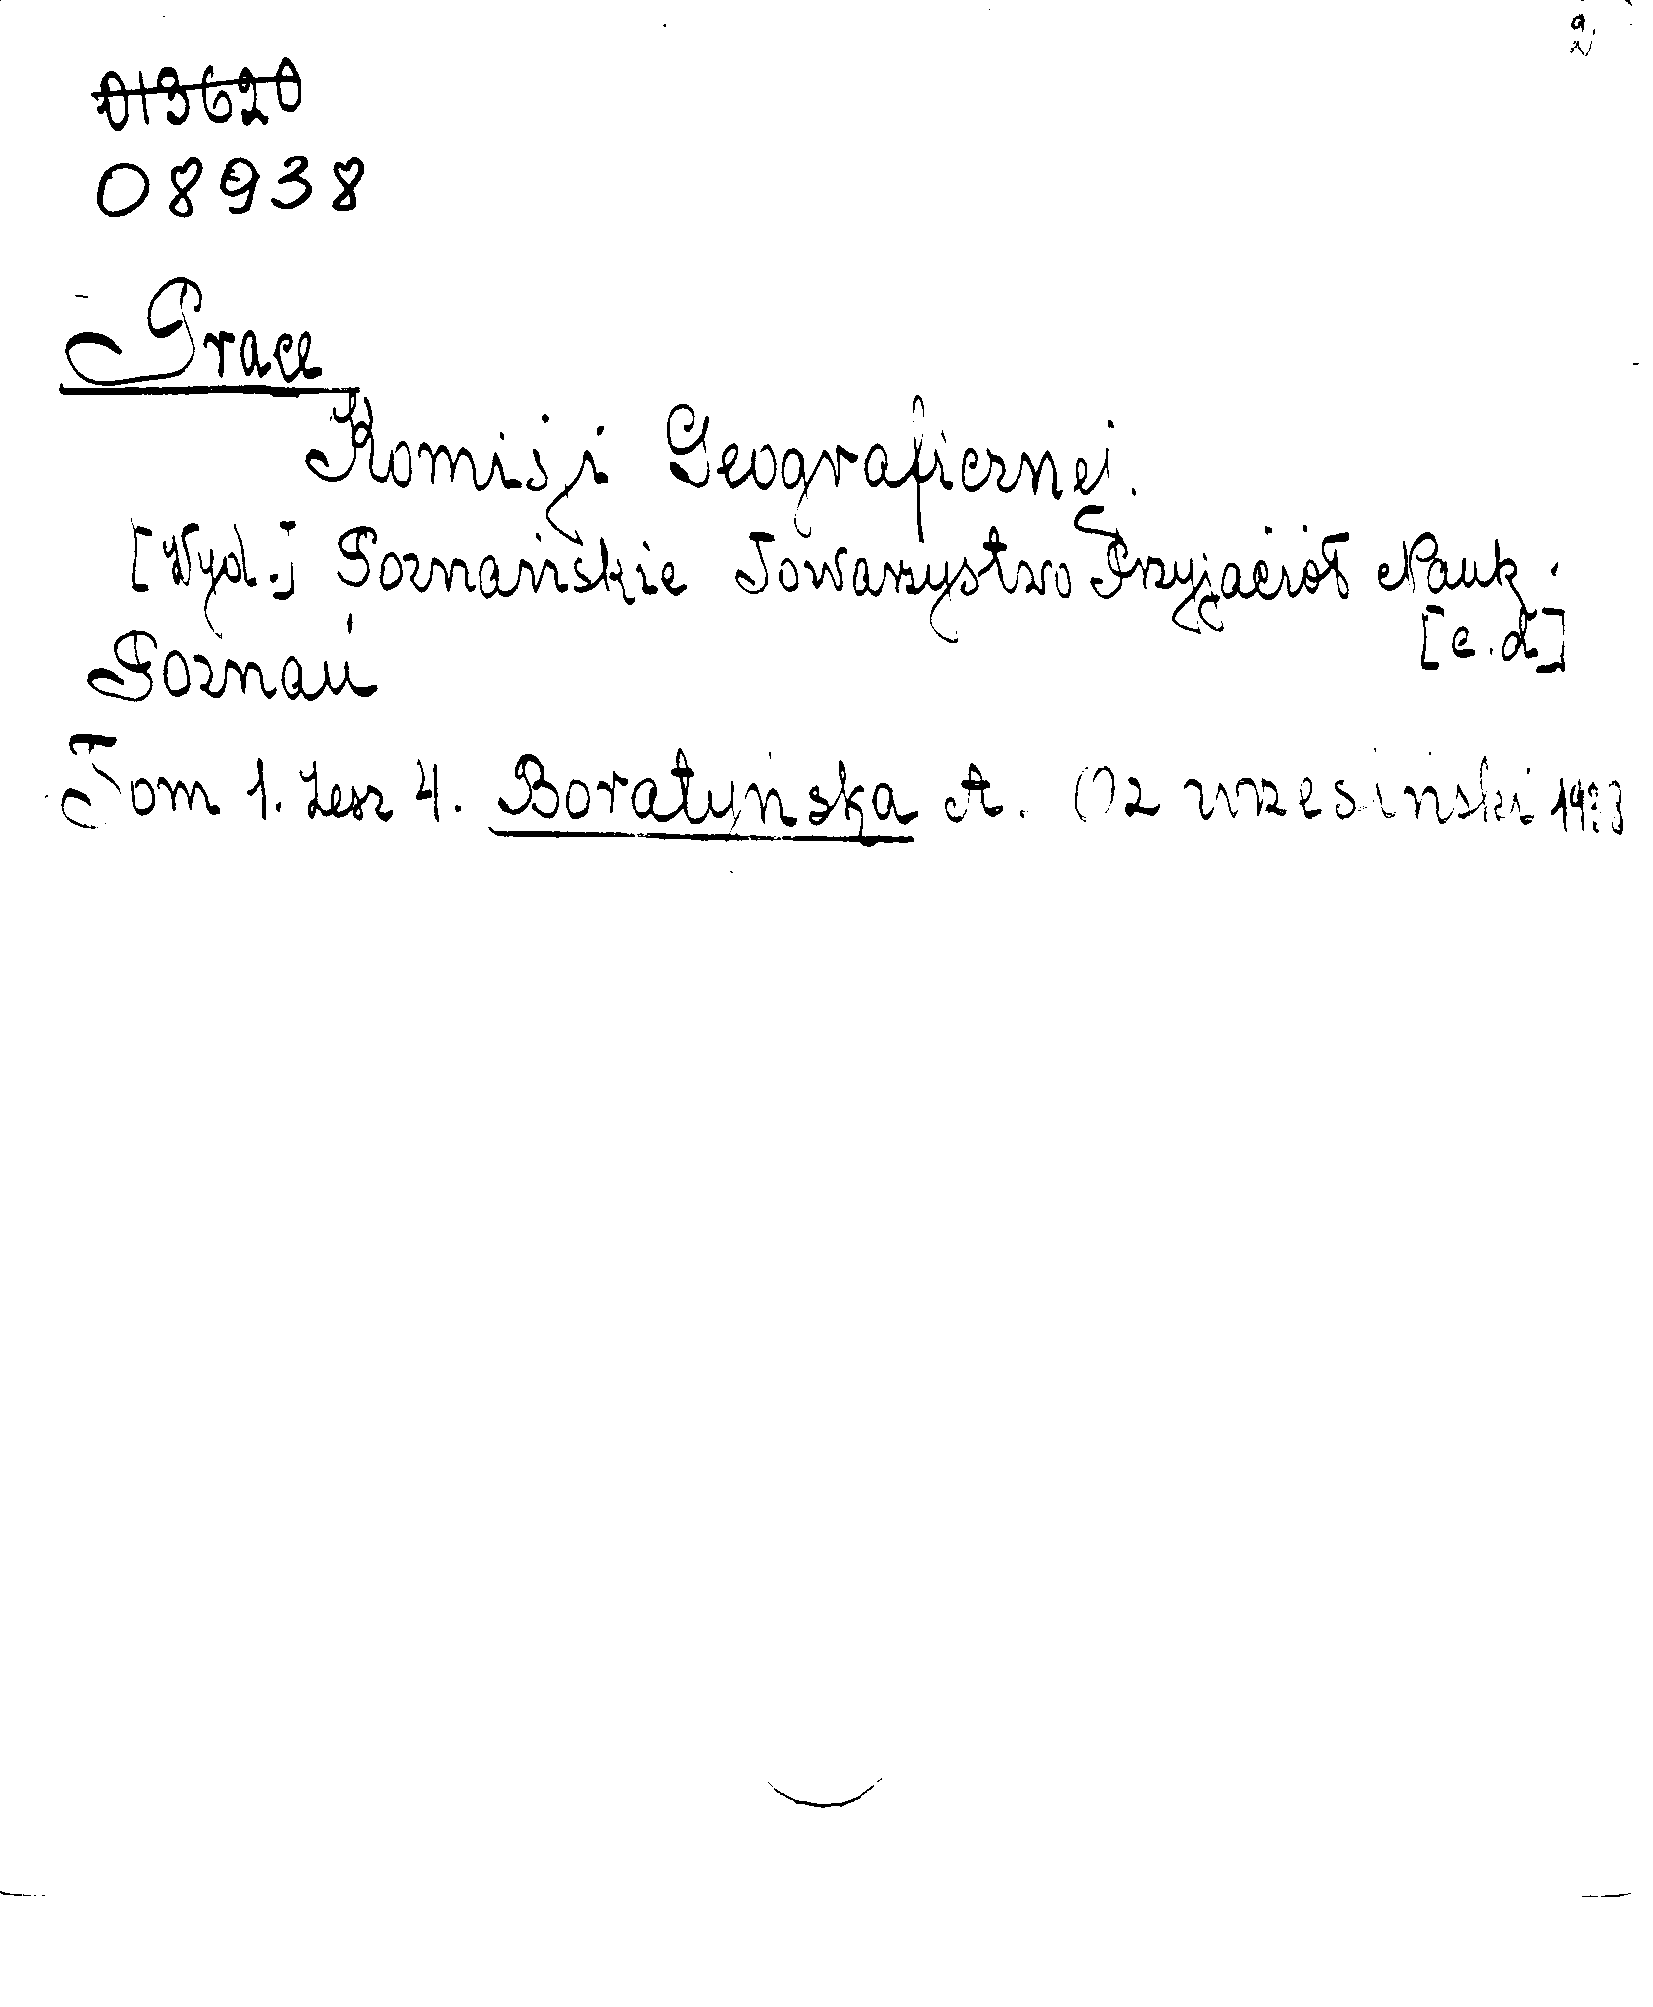 013620
08938
Prace
Komisji Geograficznej.
[Wyd.] Poznańskie Towarzystwo Przyjaciół Nauk.
[c.d]
Poznań
Tom 1. Zesz 4. Boratyńska A. Oz wrzesiński